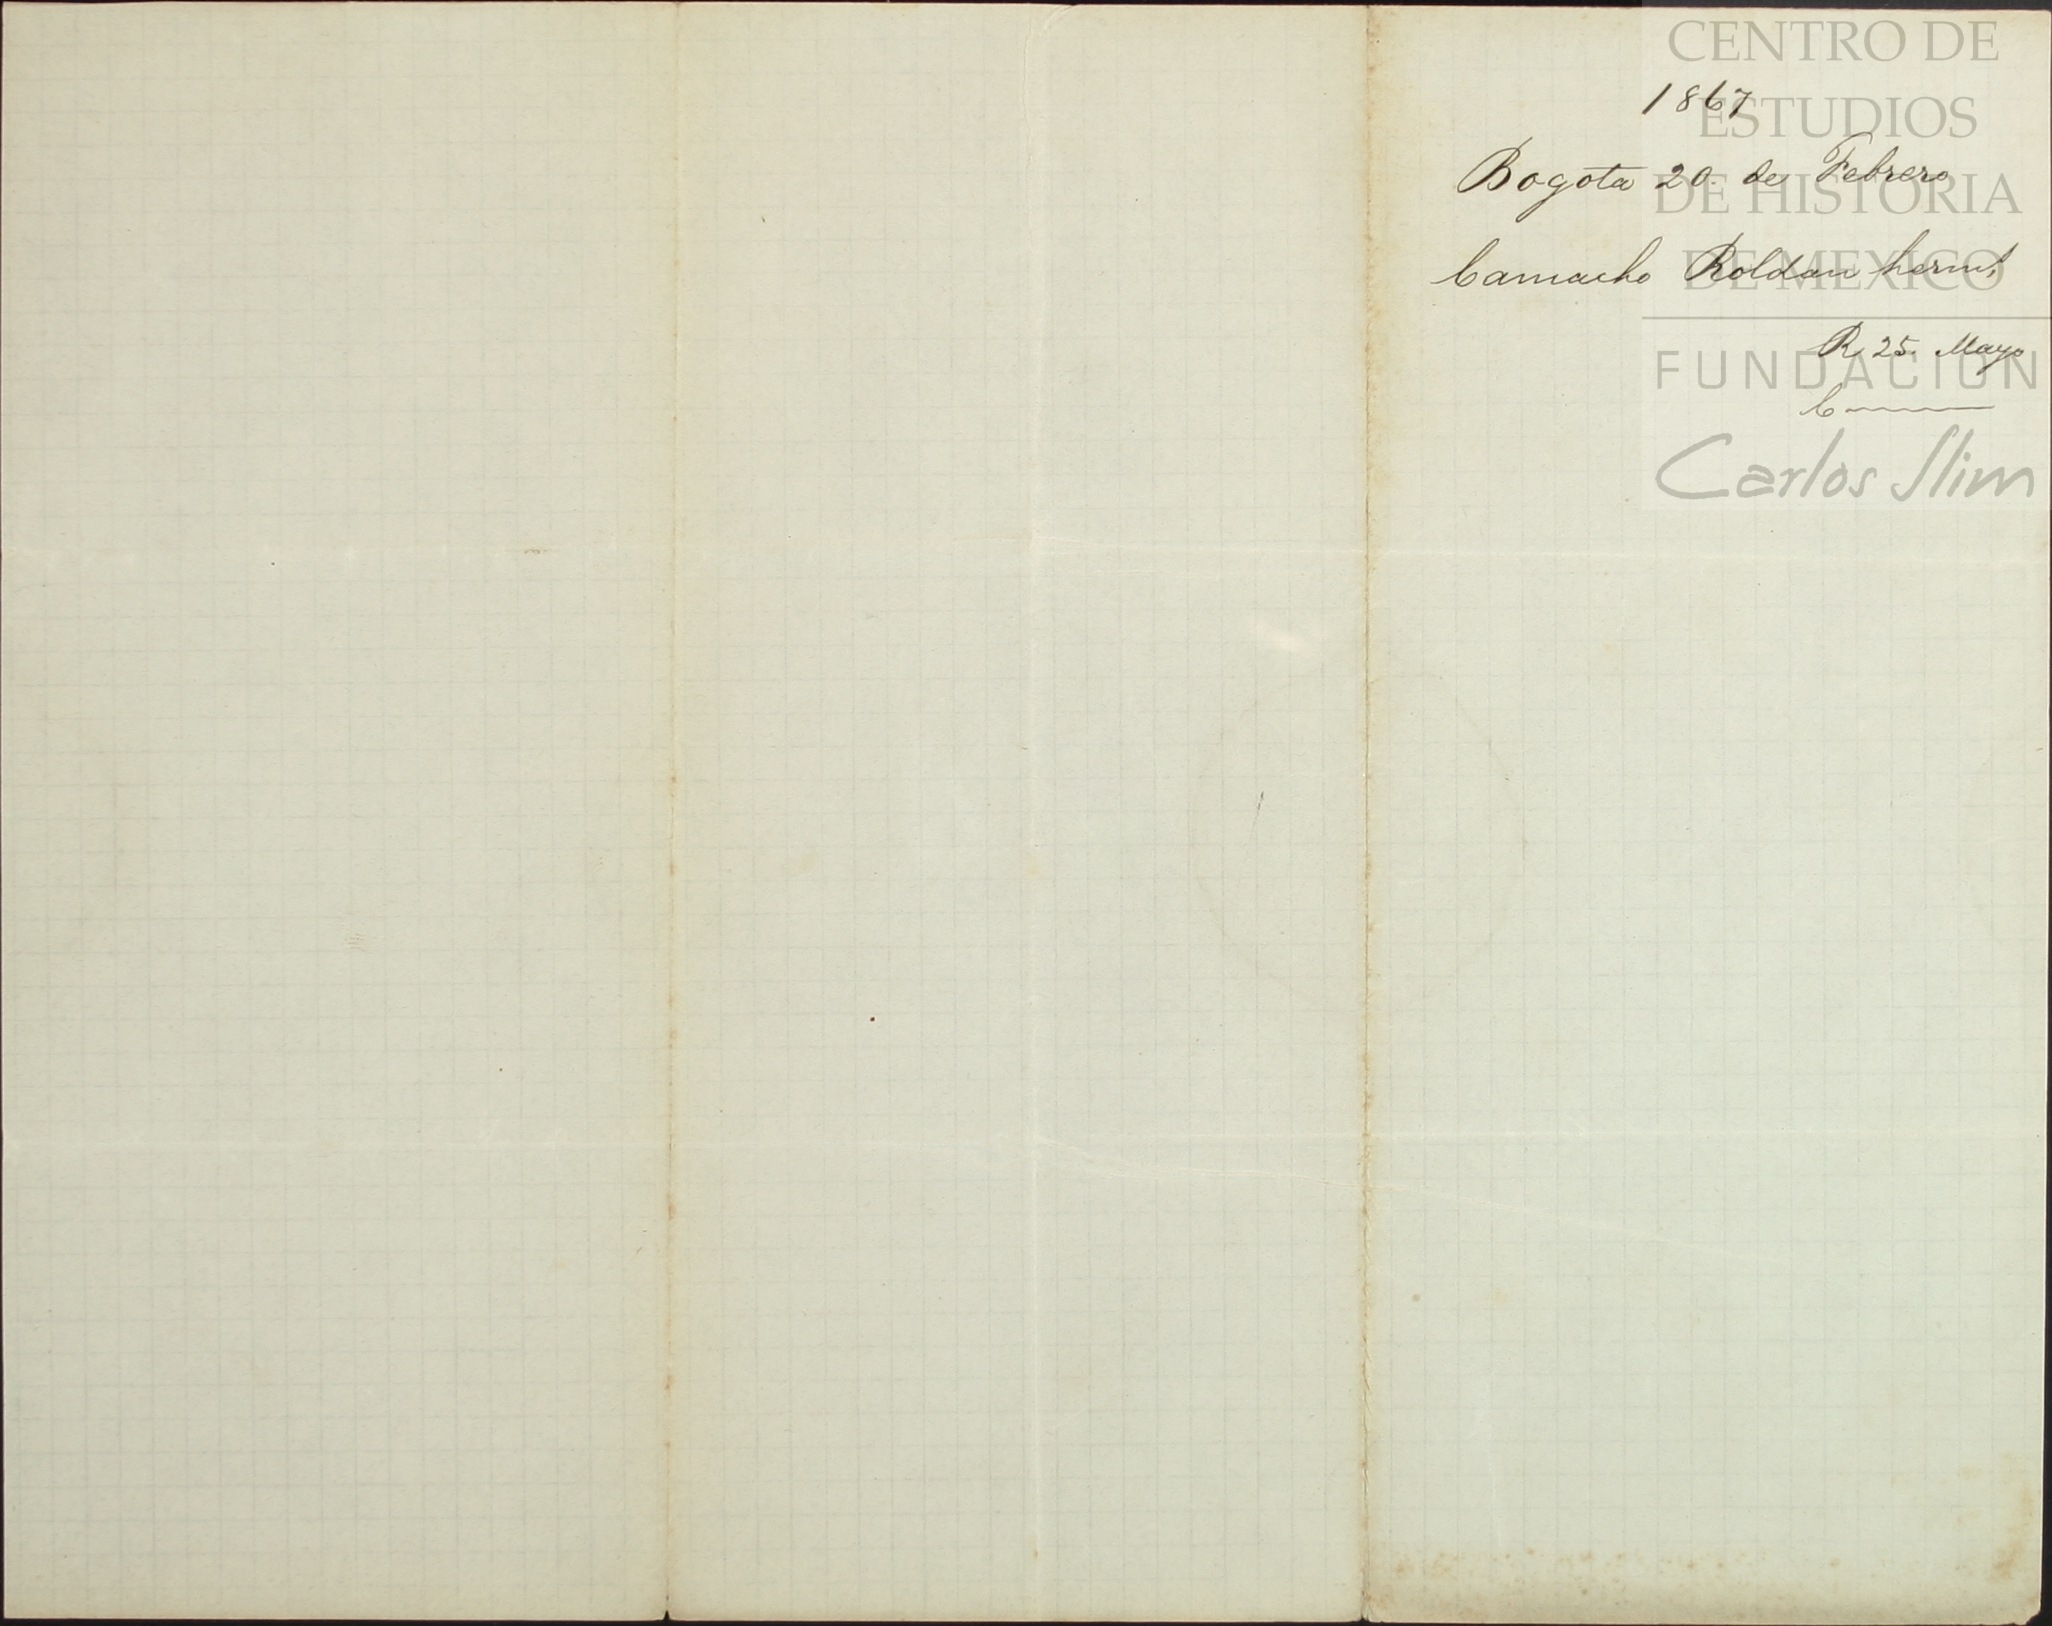 1867
Bogota 20. de Febrero
Camacho Roldan herms
R 25. Mayo
C
CENTRO DE
ESTUDIOS
DE HISTORIA
DE MEXICO
FUNDACION
Carlos Slim